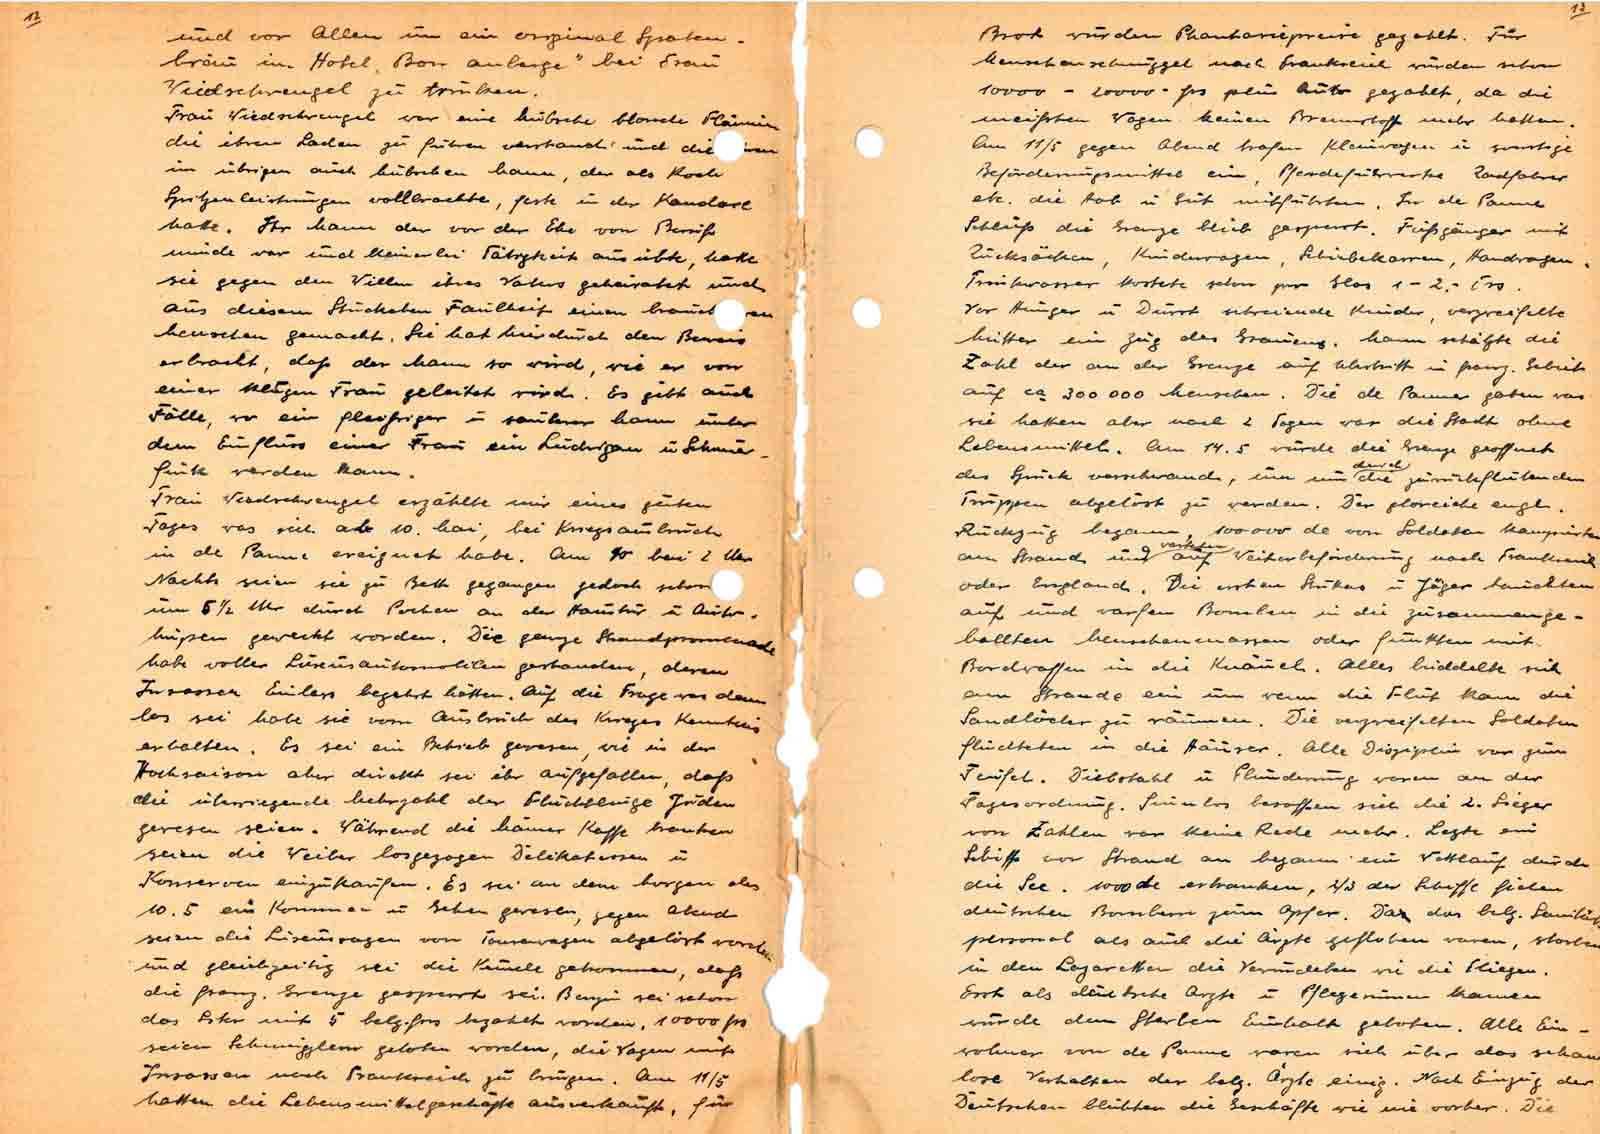 12
und vor Allem um ein original Spaten-
bräu im Hotel „Bon auberge" bei Frau
Viedschwengel zu trinken.
Frau Viedschwengel war eine hübsche blonde Flämin
die ihren Laden zu führen verstand und die
im übrigen auch hübschen Mann, der als Koch
Spitzenleistungen vollbrachte, feste in der Kandare
hatte. Ihr Mann der vor der Ehe von Beruf
müde war und keinerlei Tätigkeit ausübte, hatte
sie gegen den Willen ihres Vaters geheiratet und
aus diesem Stückchen Faulheit einen
Menschen gemacht. Sie hat hierdurch den Beweis
erbracht, daß der Mann so wird, wie er von
einer klugen Frau geleitet wird. Es gibt auch
Fälle, wo ein fleißiger u sauberer Mann unter
dem Einfluss einer Frau ein Ludrigan u Schmier-
fink werden kann.
Frau Viedschwengel erzählte mir eines guten
Tages was sich ab 10. Mai, bei Kriegsausbruch
in de Panne ereignet habe. Am 10 bei 2 Uhr
Nachts seien sie zu Bett gegangen jedoch schon
um 5½ Uhr durch Pochen an der Haustür u Auto-
hupen geweckt worden. Die ganze Strandpromenade
habe voller Luxusautomobilen gestanden, deren
Insassen Einlass begehrt hätten. Auf die Frage was denn
los sei habe sie vom Ausbruch des Krieges Kenntnis
erhalten. Es sei ein Betrieb gewesen, wie in der
Hochsaison aber direkt sei ihr aufgefallen, daß
die überwiegende Mehrzahl der Flüchtlinge Juden
gewesen seien. Während die Männer Kaffe tranken
seien die Weiber losgezogen Delikatessen u
Konserven einzukaufen. Es sei an dem Morgen des
10.5 ein Kommen u Gehen gewesen, gegen Abend
seien die Luxuswagen von Tourewagen abgelöst worden
und gleichzeitig sei die Kunde gekommen, daß
die franz. Grenze gesperrt sei. Benzin sei schon
das Liter mit 5 belg. frs bezahlt worden, 10000 frs
seien Schmugglern geboten worden, die Wagen mit
Insassen nach Frankreich zu bringen. Am 11/5
hatten die Lebensmittelgeschäfte ausverkauft, für
13
Brot wurden Phantasiepreise gezahlt. Für
Menschenschmuggel nach Frankreich wurden schon
10000 - 20000 - frs plus Auto gezahlt, da die
meisten Wagen keinen Brennstoff mehr hatten.
Am 11/5 gegen Abend trafen Kleinwagen u sonstige
Beförderungsmittel ein, Pferdefuhrwerke Radfahrer
etc. die Hab u Gut mitführten. In de Panne
Schluß die Grenze blieb gesperrt. Fußgänger mit
Rucksäcken, Kinderwagen, Schiebekarren, Handwagen.
Trinkwasser kostete schon pro Glas 1 - 2.- frs.
Vor Hunger u Durst schreiende Kinder, verzweifelte
Mütter ein Zug des Grauens. Man schätzte die
Zahl der an der Grenze auf Übertritt in franz. Gebiet
auf ca 300 000 Menschen. Die de Panner gaben was
sie hatten aber nach 2 Tagen war die Stadt ohne
Lebensmitteln. Am 14.5 wurde die Grenze geöffnet
der Spuck verschwand, um nun durch die zurückflutenden
Truppen abgelöst zu werden. Der glorreiche engl.
Rückzug begann, 100 000 de von Soldaten kampierten
am Strand und warteten auf Weiterbeförderung nach Frankreich
oder England. Die ersten Stukas u Jäger tauchten
auf und warfen Bomben in die zusammenge-
ballten Menschenmassen oder funkten mit
Bordwaffen in die Knäuel. Alles buddelte sich
am Strande ein um wenn die Flut kam die
Sandlöcher zu räumen. Die verzweifelten Soldaten
flüchteten in die Häuser. Alle Disziplin war zum
Teufel. Diebstahl u Plünderung waren an der
Tagesordnung. Sinnlos besoffen sich die 2. Sieger
von Zahlen war keine Rede mehr. Legte ein
Schiff vor Strand an begann ein Wettlauf durch
die See. 1000de ertranken, 2/3 der Schiffe fielen
deutschen Bombern zum Opfer. Da das belg. Sanitäts
personal als auch die Ärzte geflohen waren, starben
in den Lazaretten die Verwundeten wie die Fliegen.
Erst als deutsche Ärzte u Pflegerinnen kamen
wurde dem Sterben Einhalt geboten. Alle Ein-
wohner von de Panne waren sich über das scham
lose Verhalten der belg. Ärzte einig. Nach Einzug der
Deutschen blühten die Geschäfte wie nie vorher. Die